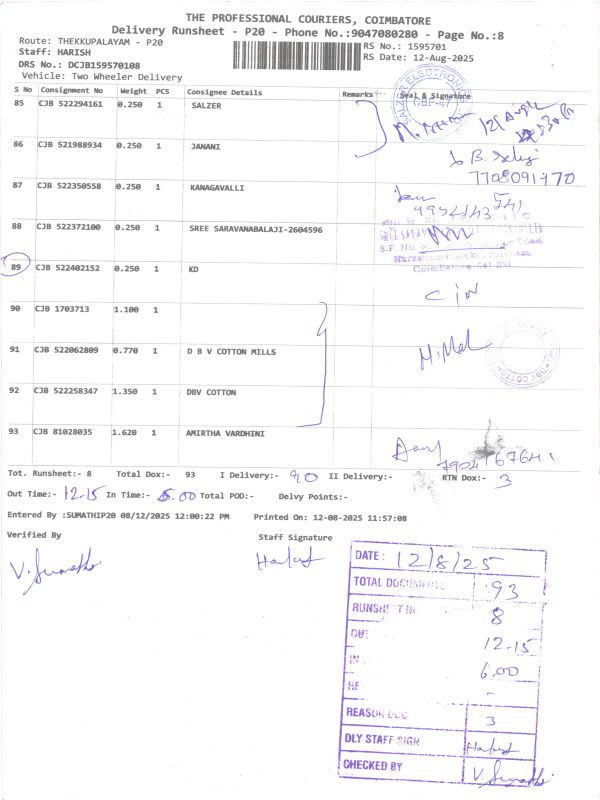 THE PROFESSIONAL COURIERS, COIMBATORE
Delivery Runsheet - P20 - Phone No.:9047080280 - Page No.:8
Route: THEKKUPALAYAM - P20
RS No.: 1595701
Staff: HARISH
RS Date: 12-Aug-2025
DRS No.: DCJB159570108
Vehicle: Two Wheeler Delivery
S No Consignment No Weight PCS Consignee Details Remarks Seal & Signature
85 CJB 522294161 0.250 1 SALZER
SALZER ELECTRONICS
86 CJB 521988934 0.250 1 JANANI
7708091470
87 CJB 522350558 0.250 1 KANAGAVALLI
88 CJB 522372100 0.250 1 SREE SARAVANABALAJI-2604596
S.F. No.
Coimbatore-641 031
89 CJB 522402152 0.250 1 KD
90 CJB 1703713 1.100 1
91 CJB 522062809 0.770 1 D B V COTTON MILLS
92 CJB 522258347 1.350 1 DBV COTTON
93 CJB 81028035 1.620 1 AMIRTHA VARDHINI
Tot. Runsheet:- 8 Total Dox:- 93 I Delivery:- 90 II Delivery:- RTN Dox:- 3
Out Time:- 12.15 In Time:- 6.00 Total POD:- Delvy Points:-
Entered By :SUMATHIP20 08/12/2025 12:00:22 PM Printed On: 12-08-2025 11:57:08
Verified By Staff Signature
V. Sumathi Harish
DATE: 12/8/25
TOTAL DOCUMENTS 93
RUNSHEET 8
OUT 12-15
IN 6.00
-
REASON DOC 3
DLY STAFF SIGN Harish
CHECKED BY V. Sumathi